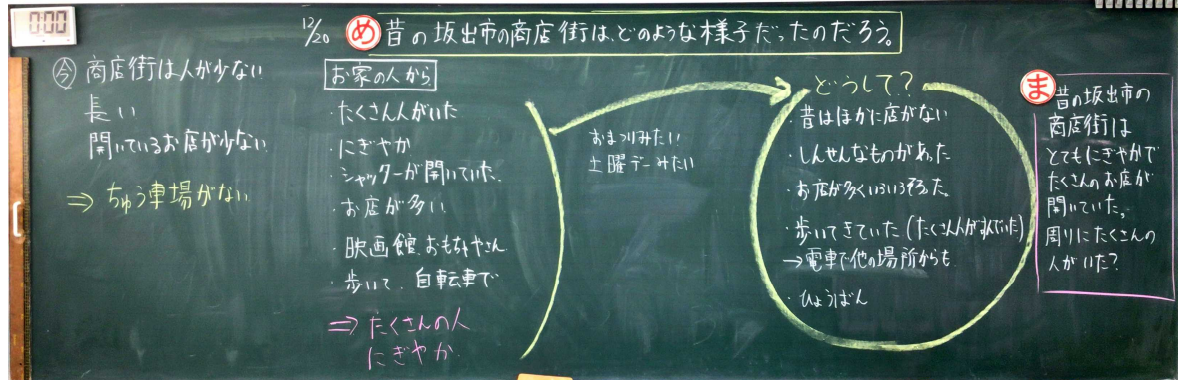 0:00
12/20
め 昔の坂出市の商店街は、どのような様子だったのだろう。
今 商店街は人が少ない
長い
開いているお店が少ない
⇒ ちゅう車場がない
お家の人から
・たくさん人がいた
・にぎやか
・シャッターが開いていた。
・お店が多い
・映画館、おもちゃやさん
・歩いて、自転車で
⇒ たくさんの人
にぎやか
おまつりみたい
土曜デーみたい
どうして?
・昔はほかに店がない
・しんせんなものがあった
・お店が多くいろいろそろった。
・歩いてきていた(たくさん人がすんでいた)
→電車で他の場所からも
・ひょうばん
ま 昔の坂出市の
商店街は
とてもにぎやかで
たくさんのお店が
開いていた。
周りにたくさんの
人がいた?